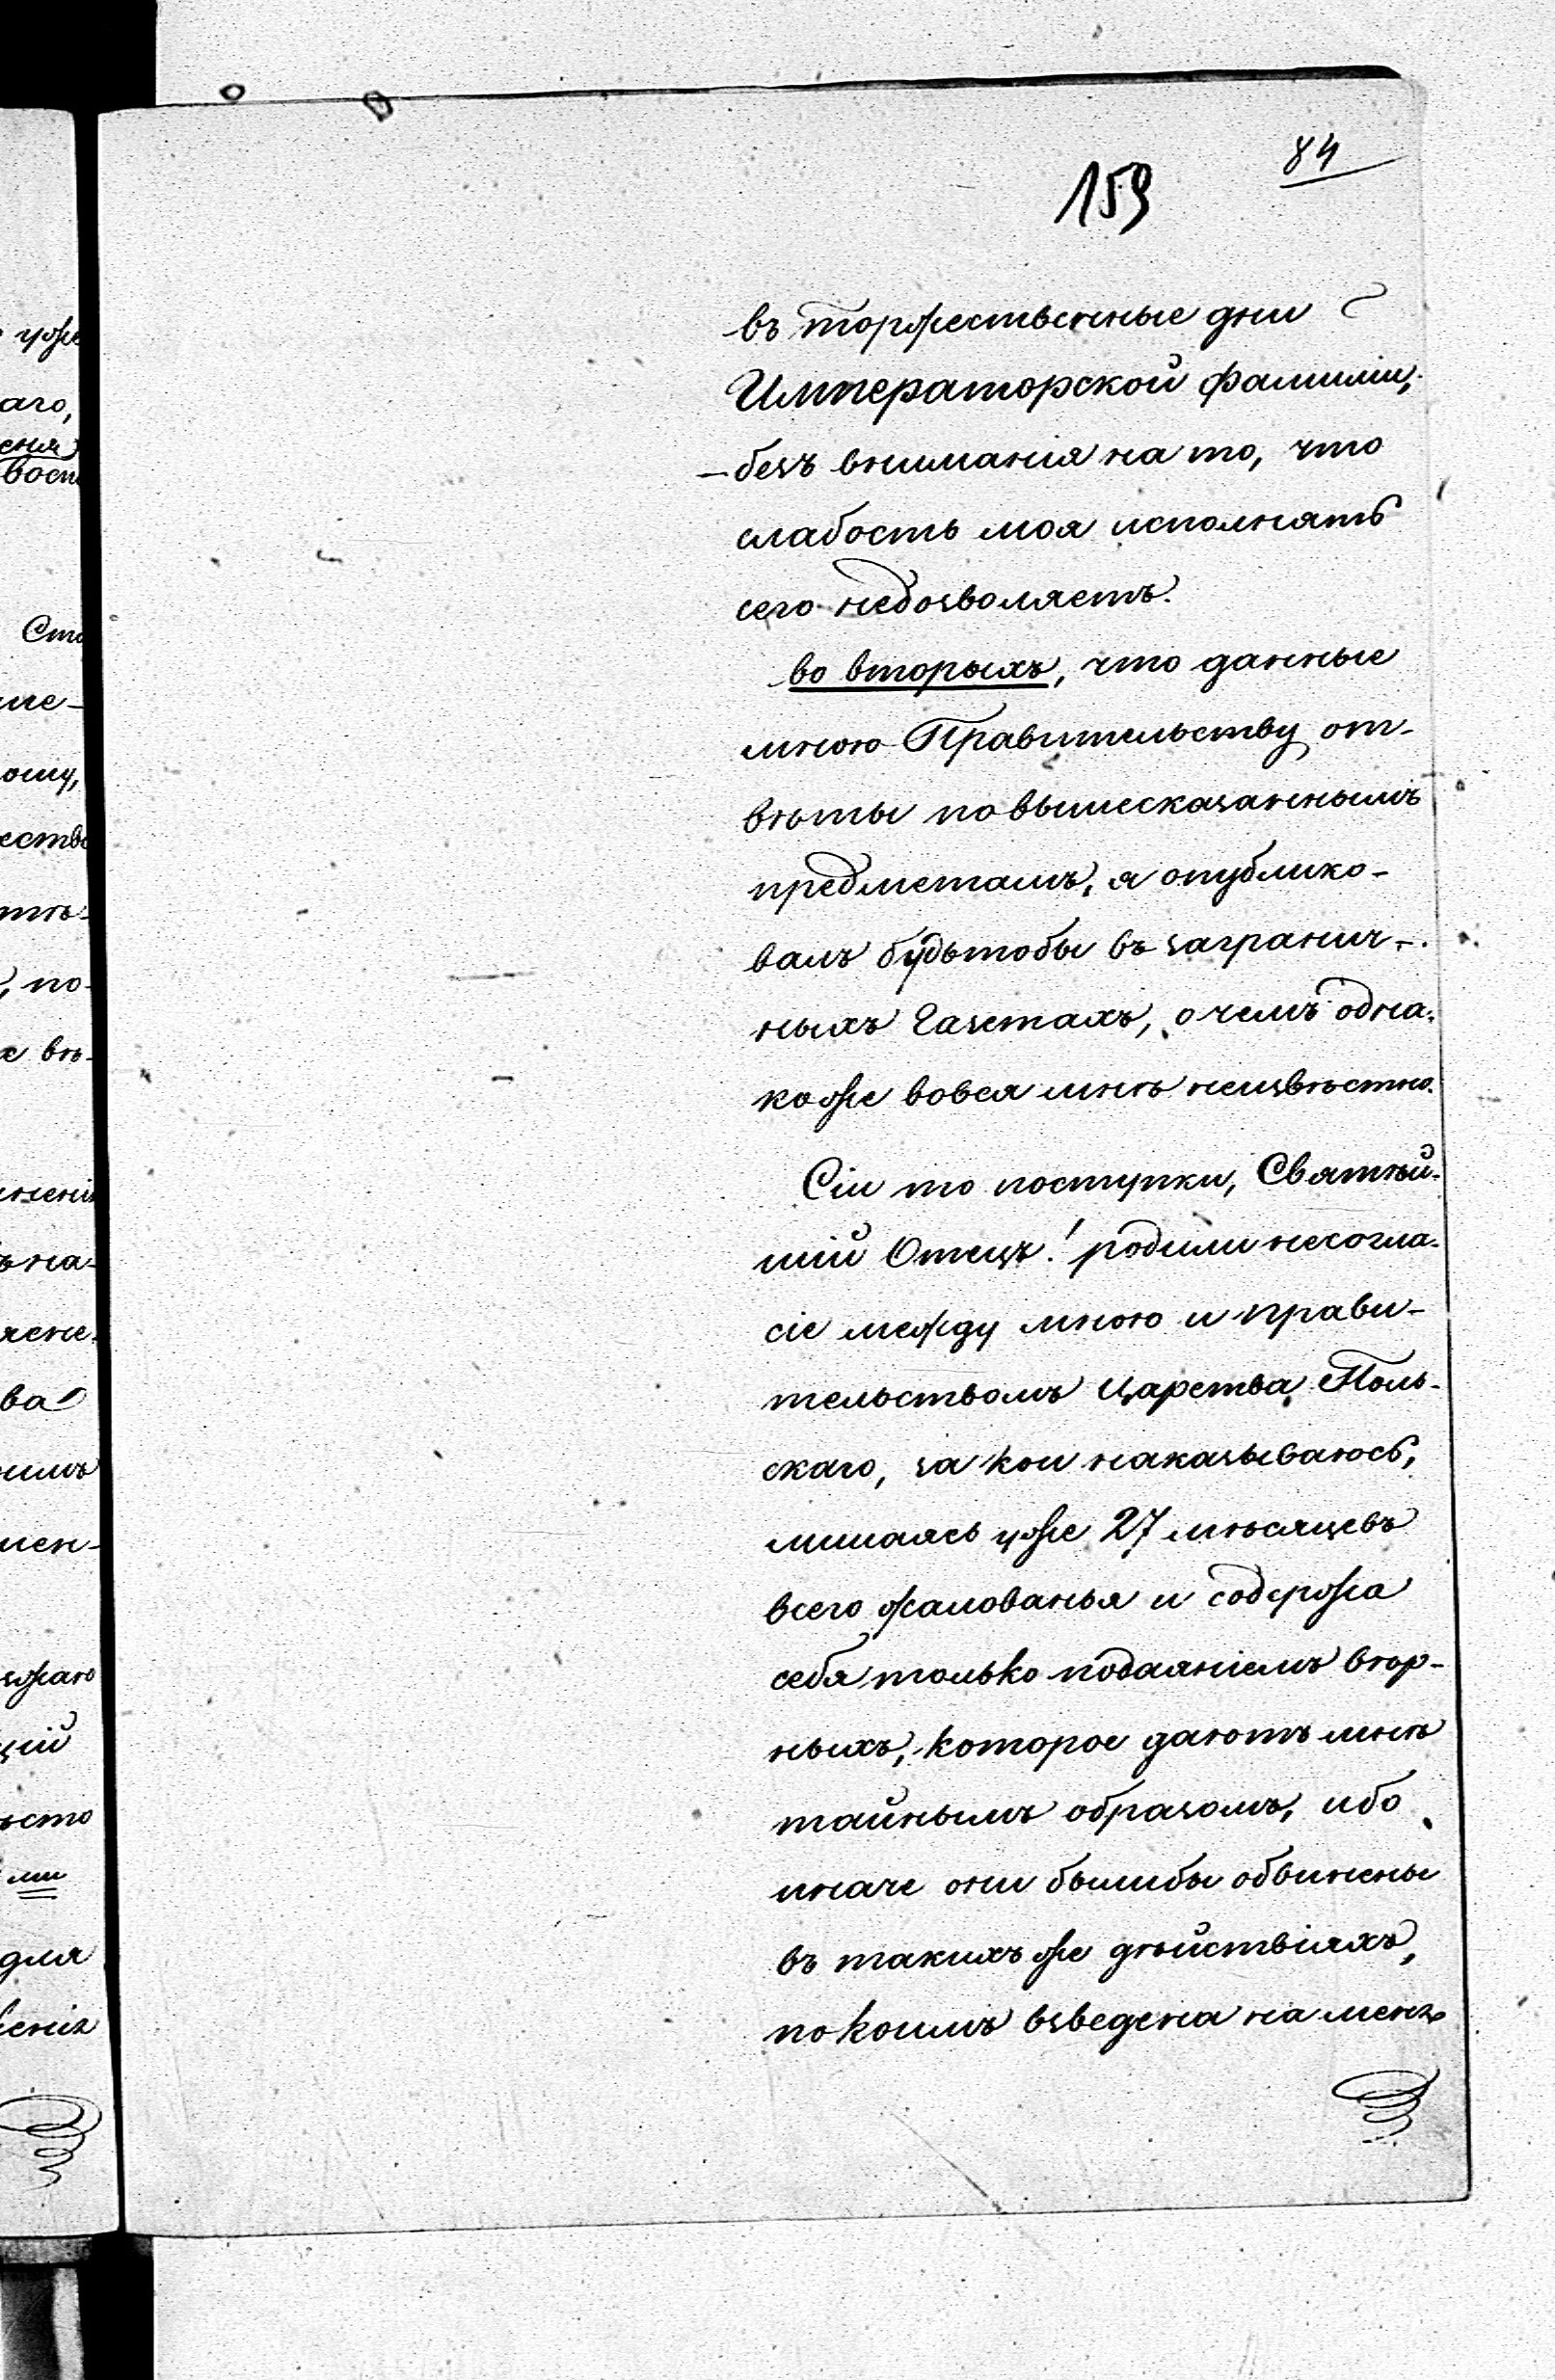 84
159
въ торжественные дни
Императорской фамиліи,
безъ вниманія на то, что
слабость моя исполнять
сего недозволяетъ.
во вторыхъ, что данные
мною Правительству от-
вѣты по вышесказаннымъ
предметамъ, я опублико-
валъ будьтобы въ загранич-
ныхъ Газетахъ, о чемъ одна-
коже вовся мнѣ неизвѣстно.
Сіи то поступки, Святѣй-
шій Отецъ! родили несогла-
сіе между мною и прави-
тельствомъ Царства Поль-
скаго, за кои наказываюсь,
лишаясь уже 27 мѣсяцевъ
всего жалованья и содержа
себя только подаяніемъ вѣр-
ныхъ, которое даютъ мнѣ
тайнымъ образомъ, ибо
иначе они былибы обвинены
въ такихъ же дѣйствіяхъ,
по коимъ взведена на меня